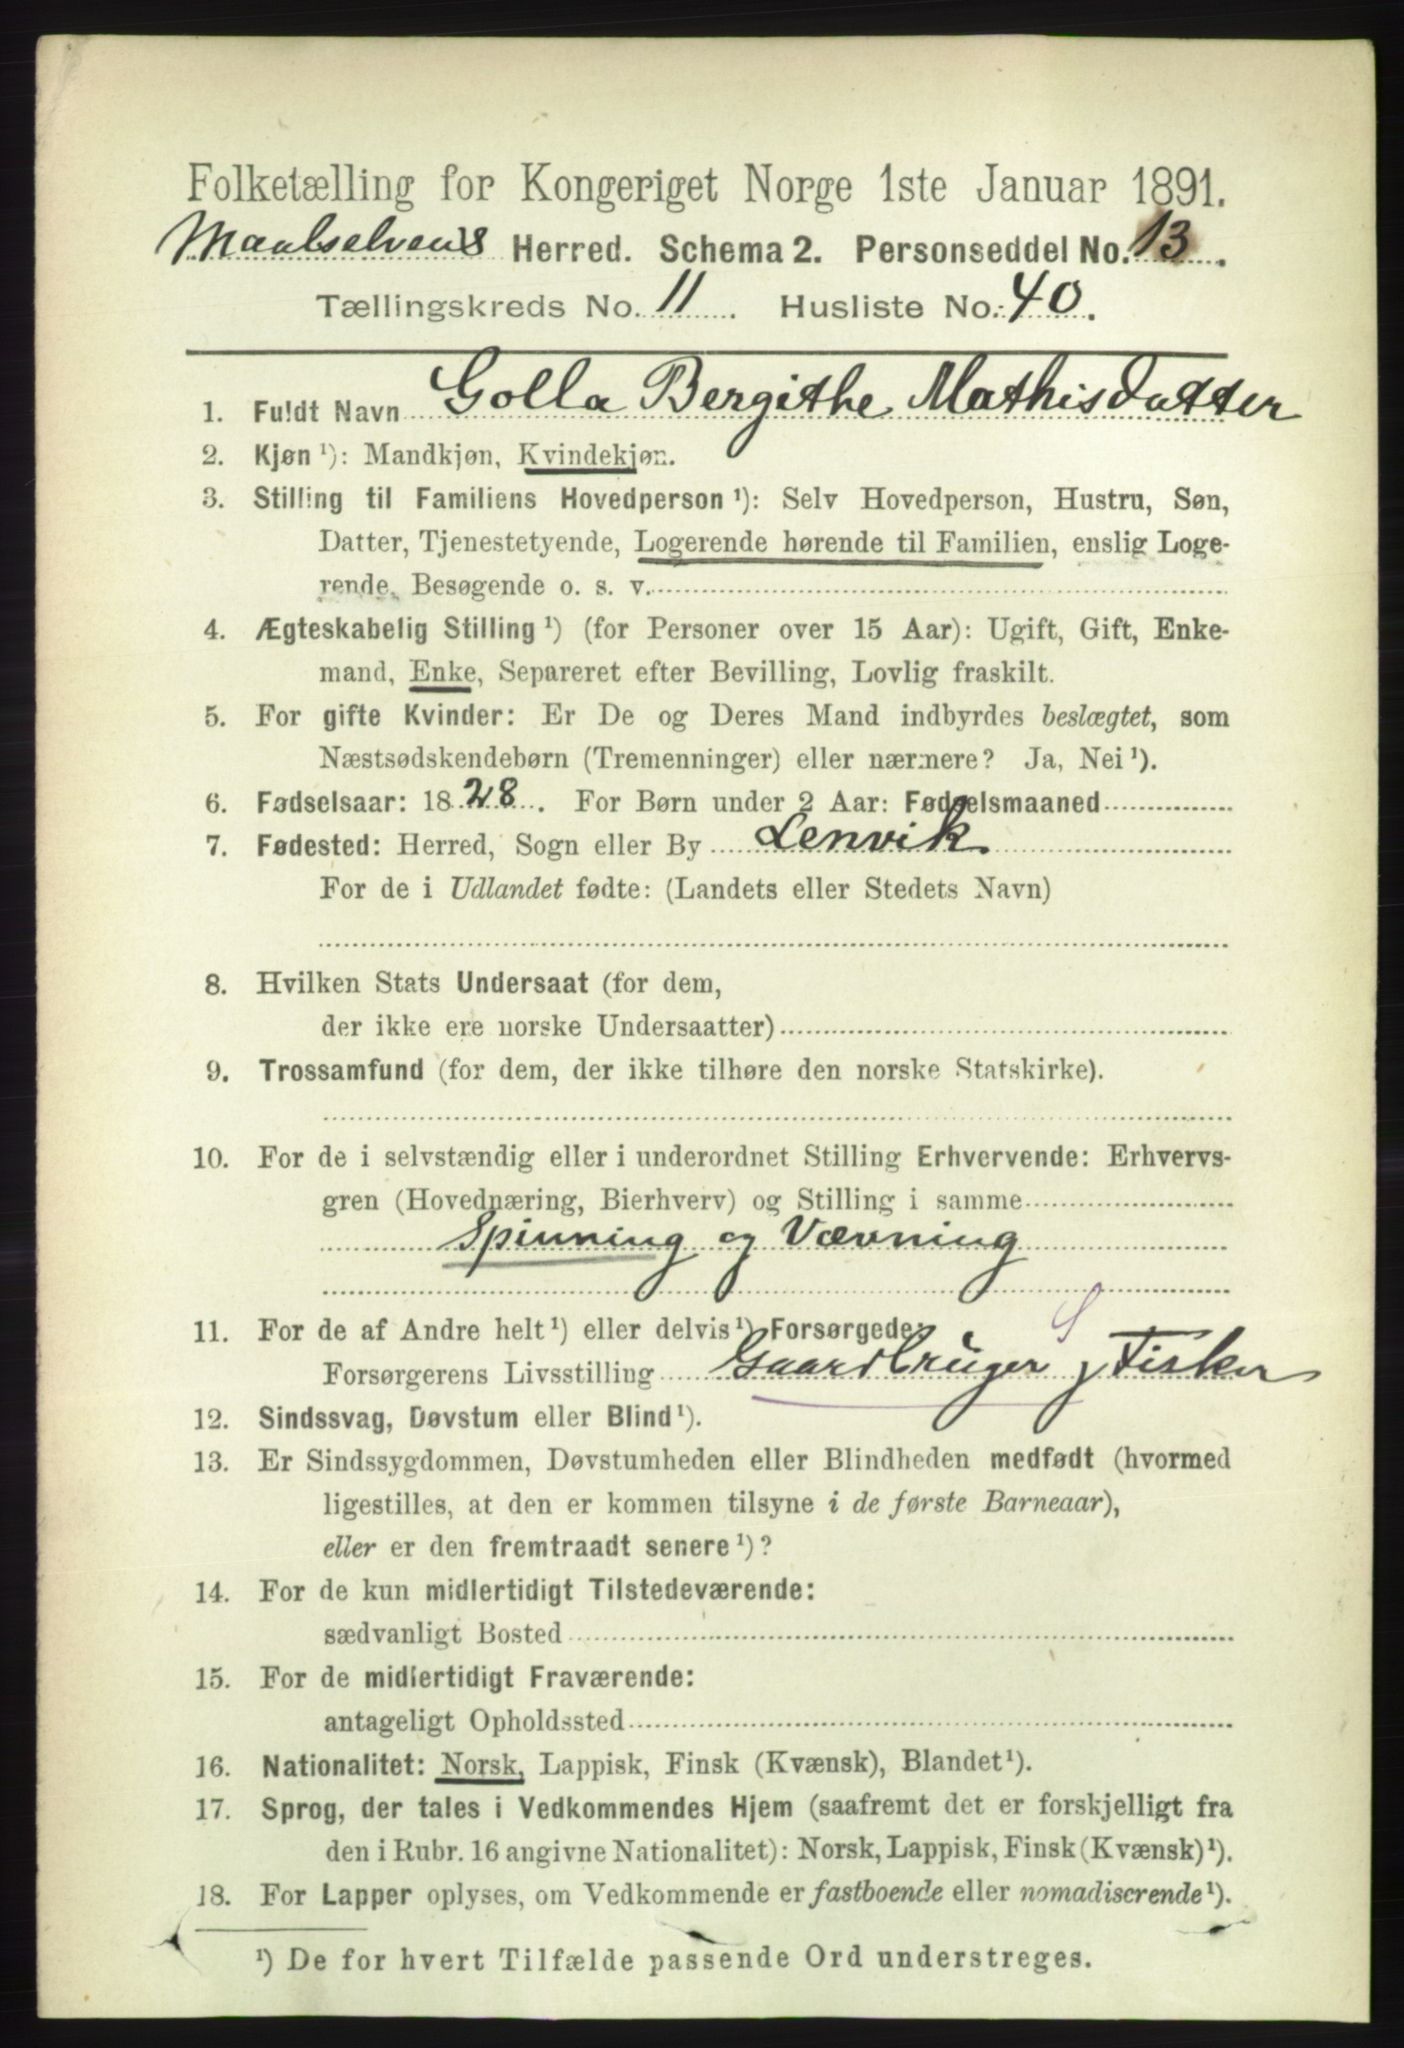 Folketælling for Kongeriget Norge 1ste Januar 1891.
Maalselvens Herred. Schema 2. Personseddel No. 13.
Tællingskreds No. 11. Husliste No. 40.
1. Fuldt Navn Golla Bergithe Mathisdatter
2. Kjøn ¹): Mandkjøn, Kvindekjøn.
3. Stilling til Familiens Hovedperson ¹): Selv Hovedperson, Hustru, Søn,
Datter, Tjenestetyende, Logerende hørende til Familien, enslig Loge-
rende, Besøgende o. s. v.
4. Ægteskabelig Stilling ¹) (for Personer over 15 Aar): Ugift, Gift, Enke-
mand, Enke, Separeret efter Bevilling, Lovlig fraskilt.
5. For gifte Kvinder: Er De og Deres Mand indbyrdes beslægtet, som
Næstsødskendebørn (Tremenninger) eller nærmere? Ja, Nei ¹).
6. Fødselsaar: 1828. For Børn under 2 Aar: Fødselsmaaned
7. Fødested: Herred, Sogn eller By Lenvik
For de i Udlandet fødte: (Landets eller Stedets Navn)
8. Hvilken Stats Undersaat (for dem,
der ikke ere norske Undersaatter)
9. Trossamfund (for dem, der ikke tilhøre den norske Statskirke).
10. For de i selvstændig eller i underordnet Stilling Erhvervende: Erhvervs-
gren (Hovednæring, Bierhverv) og Stilling i samme
Spinning og Vævning
S
11. For de af Andre helt ¹) eller delvis ¹) Forsørgede:
Forsørgerens Livsstilling Gaardbruger, Fisker
12. Sindssvag, Døvstum eller Blind ¹).
13. Er Sindssygdommen, Døvstumheden eller Blindheden medfødt (hvormed
ligestilles, at den er kommen tilsyne i de første Barneaar),
eller er den fremtraadt senere ¹)?
14. For de kun midlertidigt Tilstedeværende:
sædvanligt Bosted
15. For de midlertidigt Fraværende:
antageligt Opholdssted
16. Nationalitet: Norsk, Lappisk, Finsk (Kvænsk), Blandet ¹).
17. Sprog, der tales i Vedkommendes Hjem (saafremt det er forskjelligt fra
den i Rubr. 16 angivne Nationalitet): Norsk, Lappisk, Finsk (Kvænsk) ¹).
18. For Lapper oplyses, om Vedkommende er fastboende eller nomadiserende ¹).
¹) De for hvert Tilfælde passende Ord understreges.